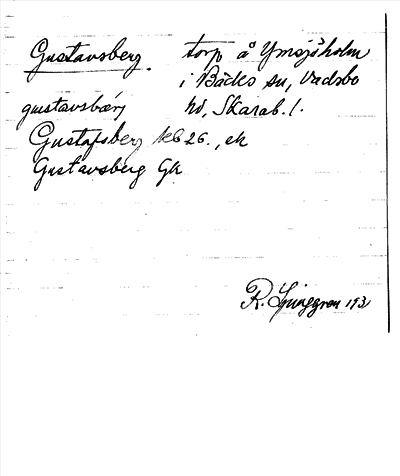 Gustavsberg. torp å Ymsjöholm
i Bäcks sn, Vadsbo
gustavsbærj hd, Skarab. l.
Gustafsberg 26., ek
Gustavsberg Gk
R. Ljunggren 193